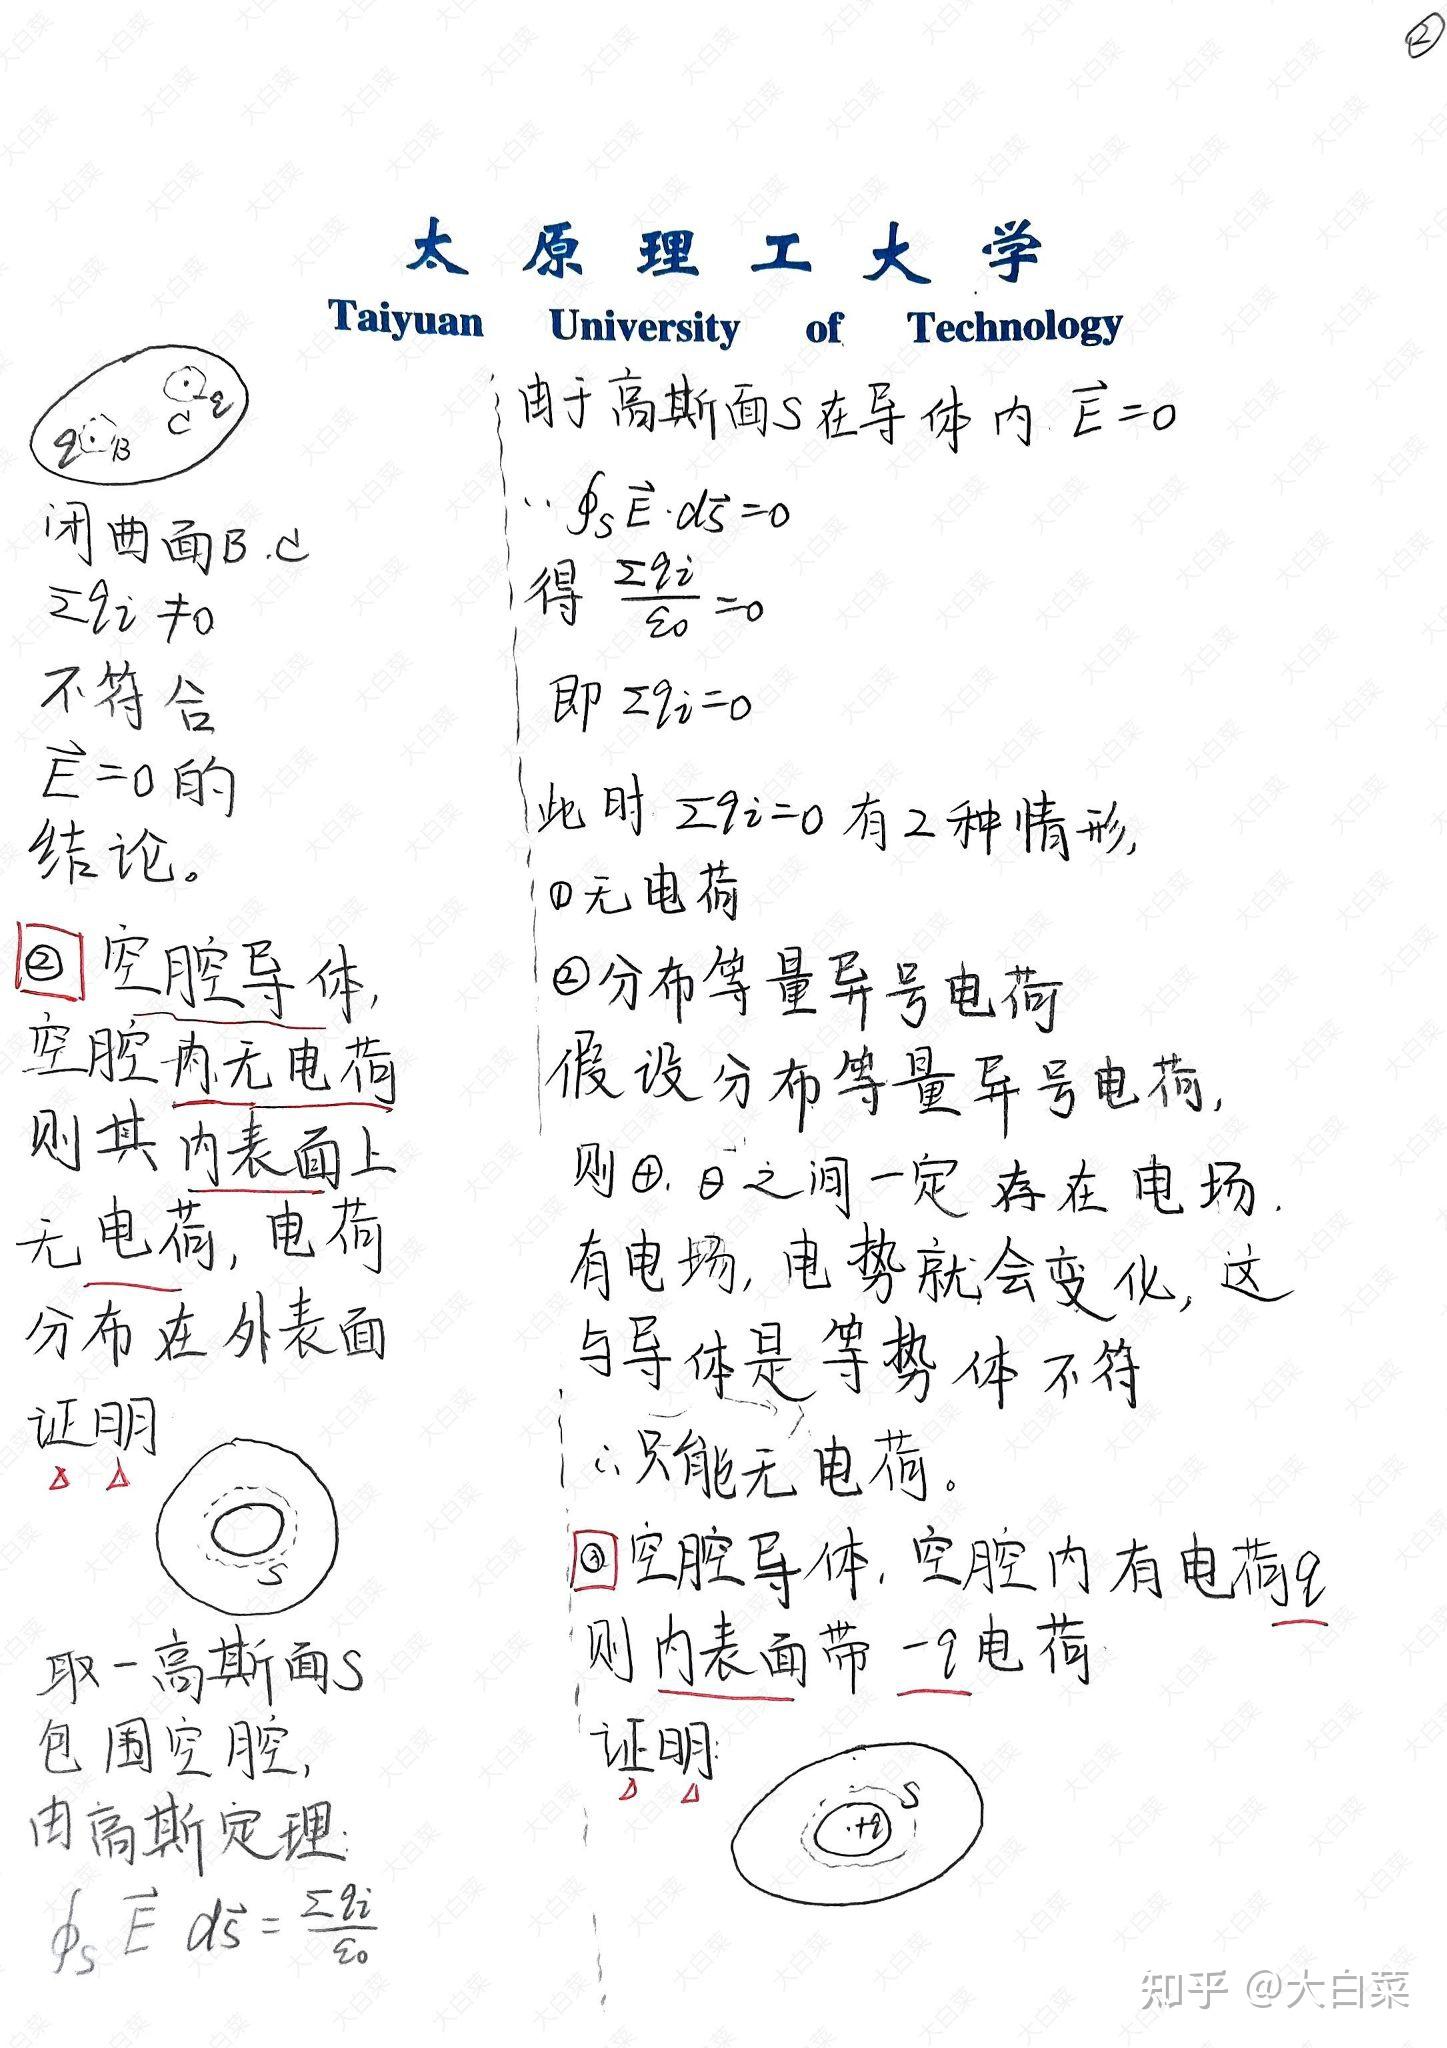 ②
太原理工大学
Taiyuan University of Technology
q B C -q
闭曲面B.C
Σqi≠0
不符合
E⃗=0的
结论。
② 空腔导体,
空腔内无电荷
则其内表面上
无电荷, 电荷
分布在外表面
证明
S
取一高斯面S
包围空腔,
由高斯定理:
∮S E⃗ ds⃗ = Σqi/ε0
由于高斯面S在导体内 E⃗=0
∵ ∮S E⃗·ds⃗=0
得 Σqi/ε0=0
即 Σqi=0
此时 Σqi=0 有2种情形,
①无电荷
②分布等量异号电荷
假设分布等量异号电荷,
则⊕. ⊖之间一定存在电场.
有电场, 电势就会变化, 这
与导体是等势体不符
∴只能无电荷。
③ 空腔导体. 空腔内有电荷q
则内表面带 -q电荷
证明:
S
+q
知乎 @大白菜